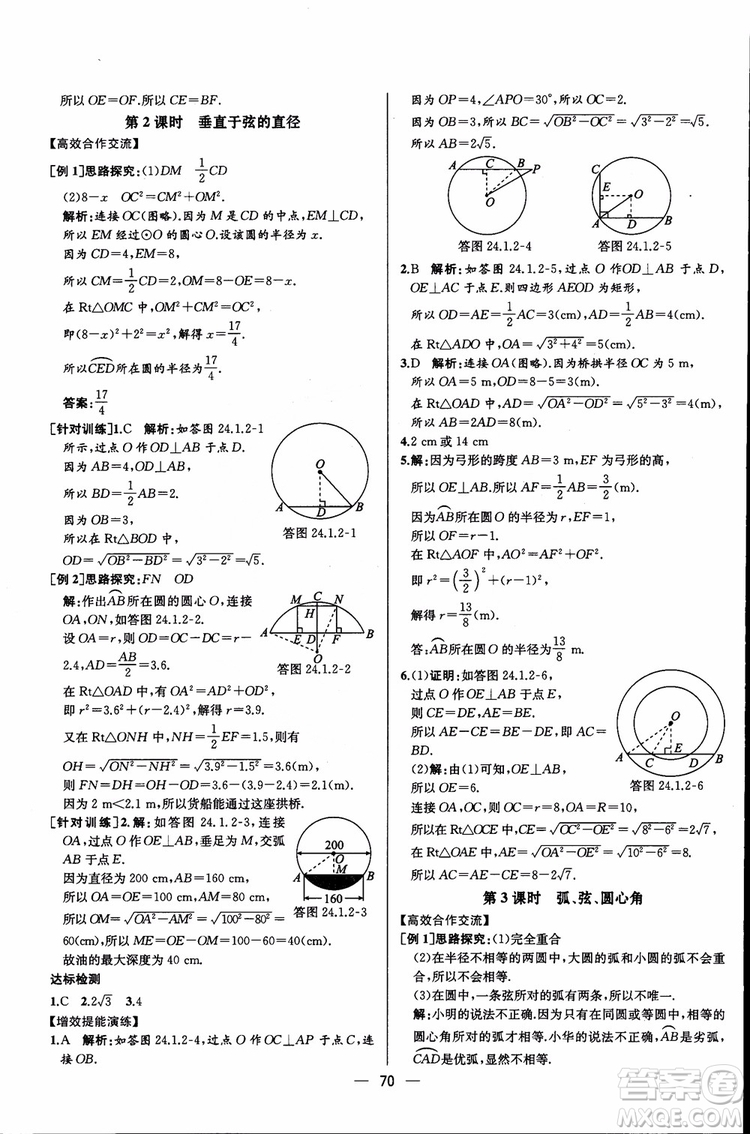 所以 OE=OF.所以 CE=BF.
第 2 课时　垂直于弦的直径
【高效合作交流】
[例 1]思路探究:(1)DM　1/2 CD
(2)8-x　OC²=CM²+OM².
解析:连接 OC(图略).因为 M 是 CD 的中点,EM⊥CD,
所以 EM 经过⊙O 的圆心 O.设该圆的半径为 x.
因为 CD=4,EM=8,
所以 CM=1/2 CD=2,OM=8-OE=8-x.
在 Rt△OMC 中,OM²+CM²=OC²,
即(8-x)²+2²=x²,解得 x=17/4.
所以CED⌒所在圆的半径为17/4.
答案:17/4
[针对训练]1.C　解析:如答图 24.1.2-1
所示,过点 O 作 OD⊥AB 于点 D.
因为 AB=4,OD⊥AB,
所以 BD=1/2 AB=1/2×4=2.
因为 OB=3,
所以在 Rt△BOD 中,
OD=√(OB²-BD²)=√(3²-2²)=√5.
O
A
D
B
答图 24.1.2-1
[例 2]思路探究:FN　OD
解:作出AB⌒所在圆的圆心 O,连接
OA,ON,如答图 24.1.2-2.
设 OA=r,则 OD=OC-DC=r-
2.4,AD=AB/2=3.6.
在 Rt△OAD 中,OA²=AD²+OD²,
即 r²=3.6²+(r-2.4)²,解得 r=3.9.
又在 Rt△OHN 中,NH=1/2 EF=1.5,所以
OH=√(ON²-NH²)=√(3.9²-1.5²)=3.6.
所以 FN=DH=OH-OD=3.6-(3.9-2.4)=2.1(m).
因为 2 m<2.1 m,所以货船能通过这座拱桥.
M C N
H
A
E D F
B
O
答图 24.1.2-2
[针对训练]2.解:如答图 24.1.2-3,连接
OA,过点 O 作 OM⊥AB,垂足为 M,交弧
AB 于点 E.
因为直径为 200 cm,OA=100 cm,AM=80 cm,
所以 OM=√(OA²-AM²)=√(100²-80²)=
60(cm).所以 ME=OE-OM=100-60=40(cm).
故油的最大深度为 40 cm.
200
O
A
M
B
160
答图 24.1.2-3
达标检测
1.C　2.2√3　3.4
【增效提能演练】
1.A　解析:如答图 24.1.2-4,过点 O 作 OC⊥AP 于点 C,连
接 OB.
因为 OP=4,∠APO=30°,所以 OC=2.
因为 OB=3,所以 BC=√(OB²-OC²)=√(3²-2²)=√5.
所以 AB=2√5.
A
C
B
P
O
答图 24.1.2-4
C
E
O
A
D
B
答图 24.1.2-5
2.B　解析:如答图 24.1.2-5,过点 O 作OD⊥AB 于点 D,
OE⊥AC 于点 E.则四边形 AEOD 为矩形,
所以 OD=AE=1/2 AC=3(cm),AD=1/2 AB=4(cm).
在 Rt△ADO 中,OA=√(3²+4²)=5(cm).
3.D　解析:连接 OA(图略).因为桥拱半径 OC 为 5 m,
所以 OA=5 m,所以 OD=8-5=3(m).
在 Rt△OAD 中,AD=√(OA²-OD²)=√(5²-3²)=4(m).
所以 AB=2AD=8(m).
4.2 cm 或 14 cm
5.解:因为弓形的跨度 AB=3 m,EF 为弓形的高,
所以 OE⊥AB.所以 AF=1/2 AB=3/2(m).
因为AB⌒所在圆 O 的半径为 r,EF=1,
所以 OF=r-1.
在 Rt△AOF 中,AO²=AF²+OF²,
即 r²=(3/2)²+(r-1)².
解得 r=13/8(m).
答:AB⌒所在圆 O 的半径为13/8 m.
6.(1)证明:如答图 24.1.2-6,
过点 O 作OE⊥AB 于点 E,
则 CE=DE,AE=BE.
所以 AE-CE=BE-DE,即 AC=
BD.
(2)解:由(1)可知,OE⊥CD,
所以 OE=6.
O
A
C
E
D
B
答图 24.1.2-6
连接 OC,OA,所以 OC=8,OA=10.
所以在 Rt△OCE 中,CE=√(OC²-OE²)=√(8²-6²)=2√7,
在 Rt△OAE 中,AE=√(OA²-OE²)=√(10²-6²)=8.
所以 AC=AE-CE=8-2√7.
第 3 课时　弧、弦、圆心角
【高效合作交流】
[例 1]思路探究:(1)完全重合
(2)在半径不相等的两圆中,大圆的弧和小圆的弧不会重
合,所以它们不会是等弧.
(3)在圆中,一条弦所对的弧有两条,它们不一定相等.
解:小明的说法不正确.因为只有在同圆或等圆中,相等的
圆心角所对的弧才相等.小华的说法不正确,AB⌒是劣弧,
CAD⌒是优弧,显然不相等.
— 70 —
答案圈
MXQE.COM